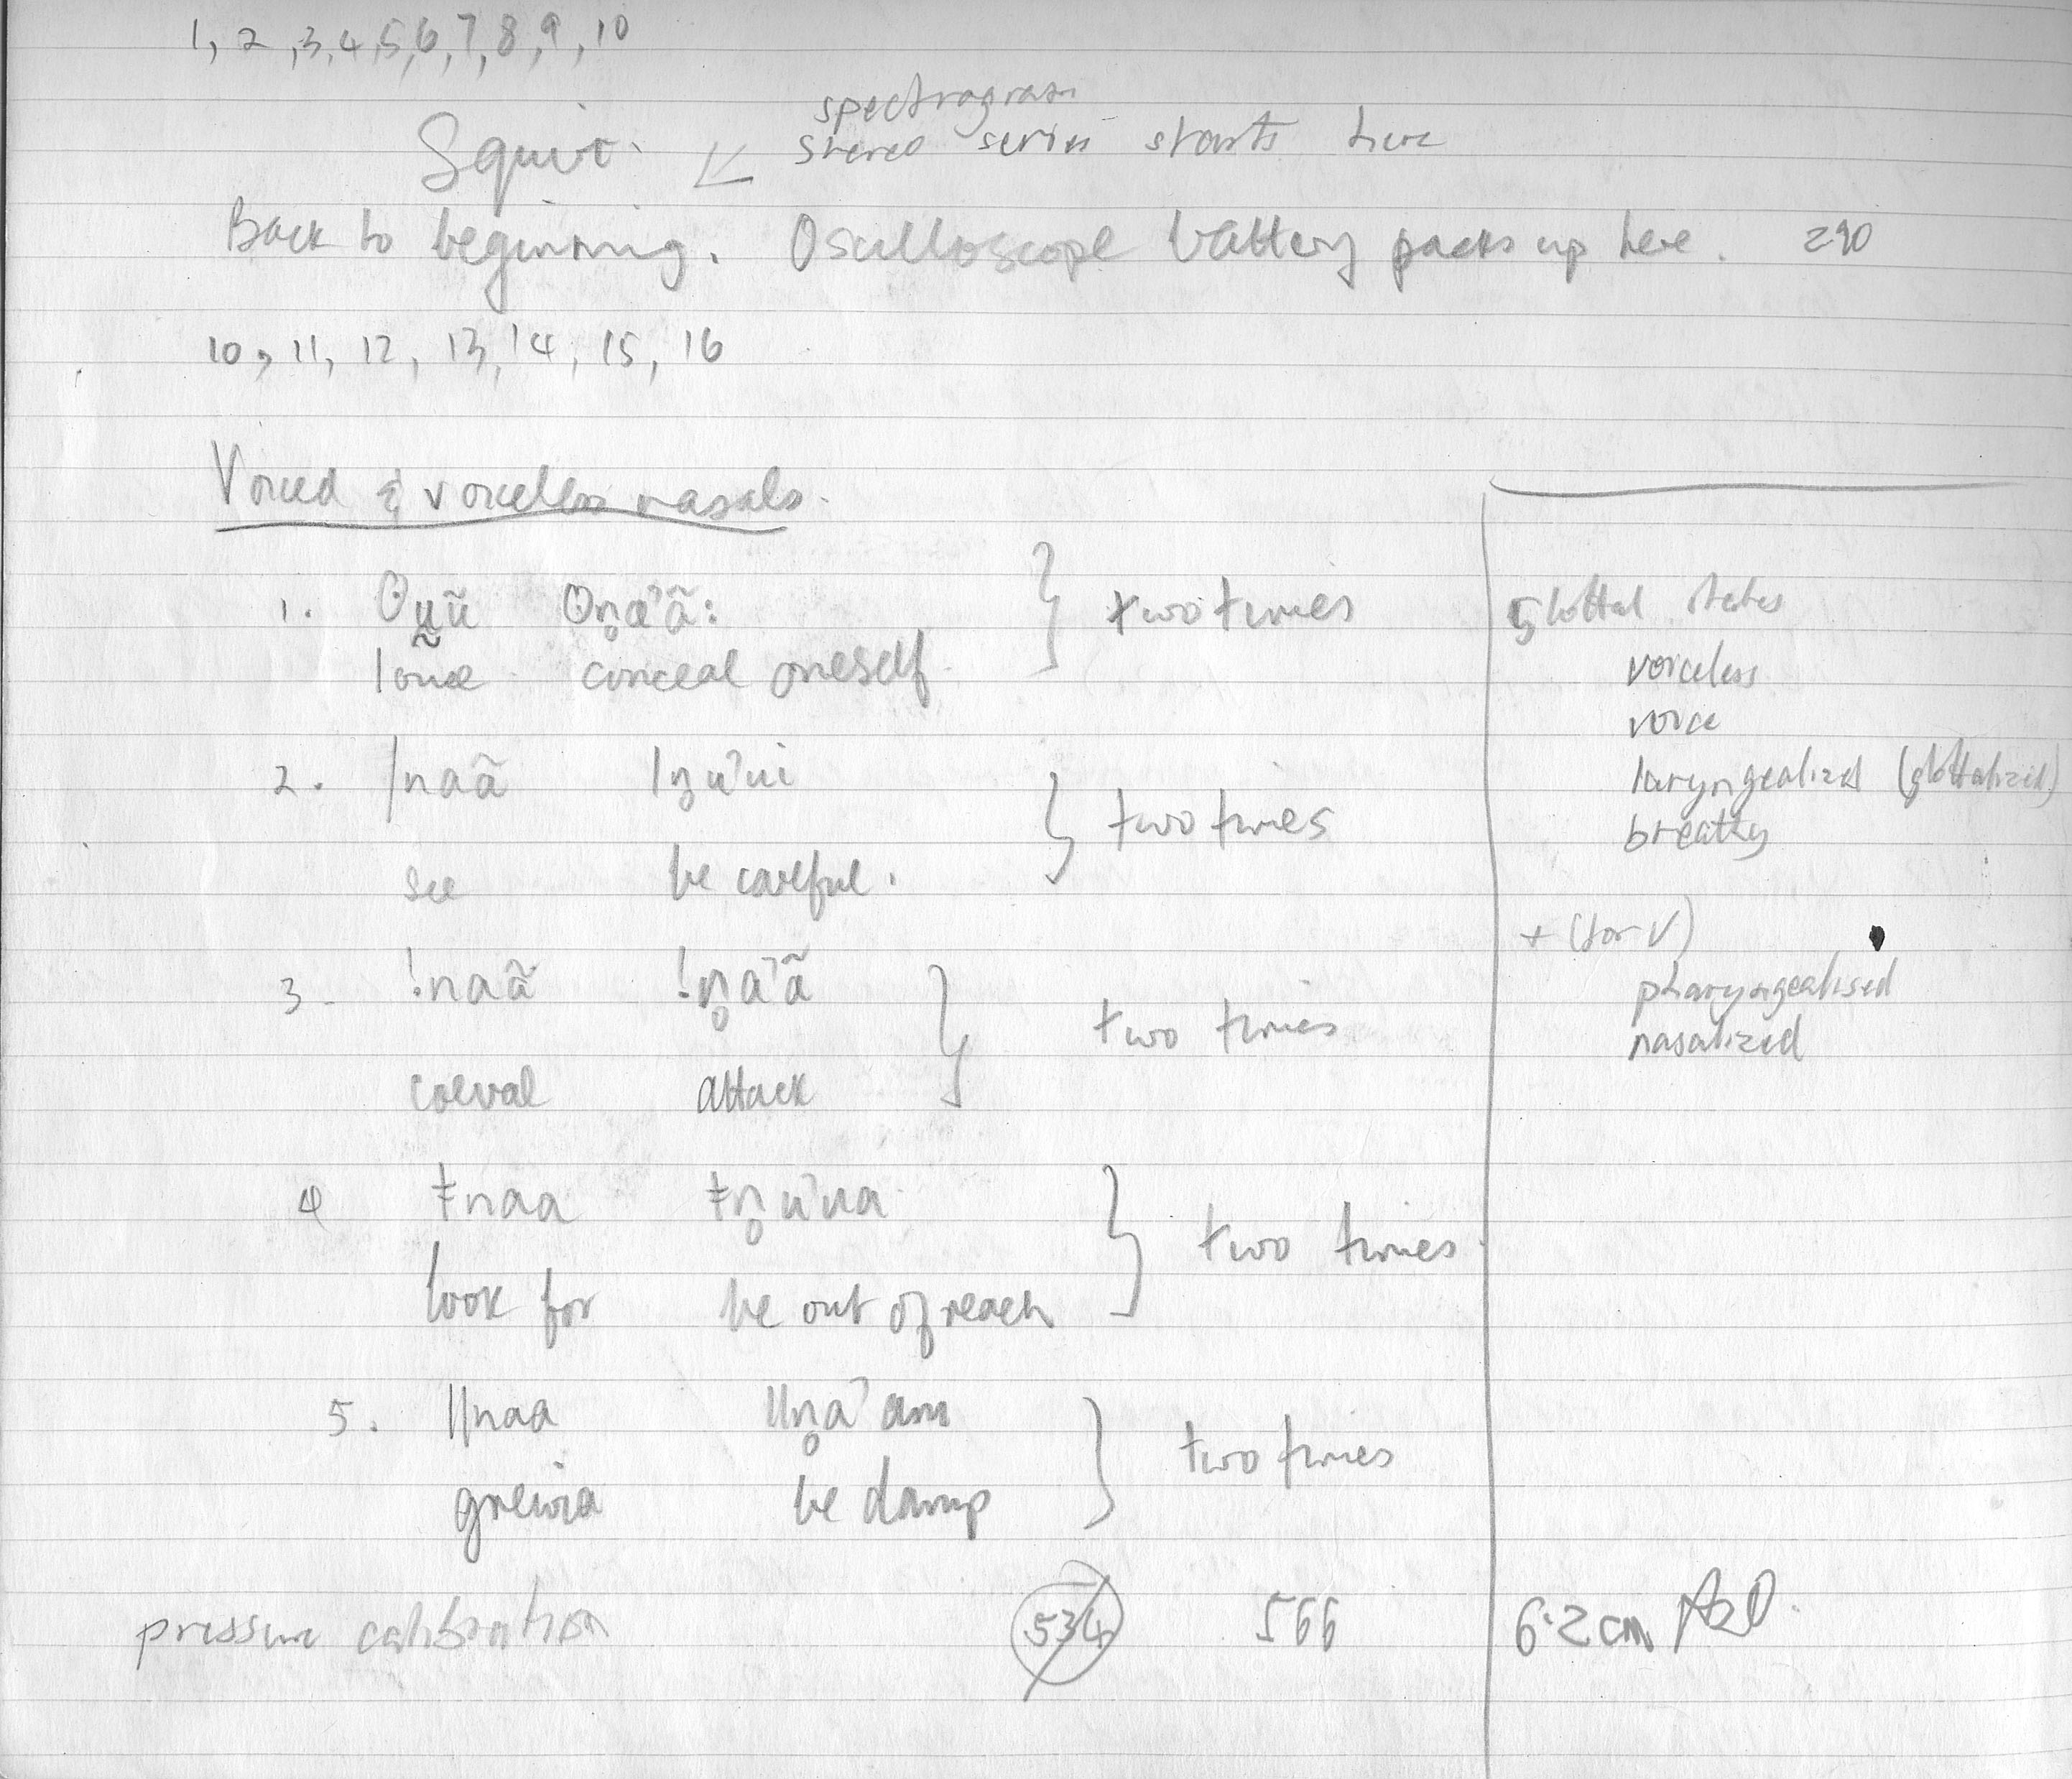 1, 2, 3, 4, 5, 6, 7, 8, 9, 10
spectrogram
Squirt. ↙ stereo series starts here
Back to beginning. Oscilloscope battery packs up here. 290
10, 11, 12, 13, 14, 15, 16
Voiced & voiceless nasals.
1. ʘṵ̃ũ ʘn̥a'ã: } two times
louse conceal oneself
2. |naã |n̥u'ui } two times
see be careful.
3. !naã !n̥a'ã } two times
coeval attack
4 ǂnaa ǂn̥u'ua } two times.
look for be out of reach
5. ||naa ||n̥a'am } two times
grewia be damp
pressure calibration 534 566 6.2 cm H2O.
Glottal states
voiceless
voice
laryngealized (glottalized)
breathy
+ (for V)
pharyngealised
nasalized